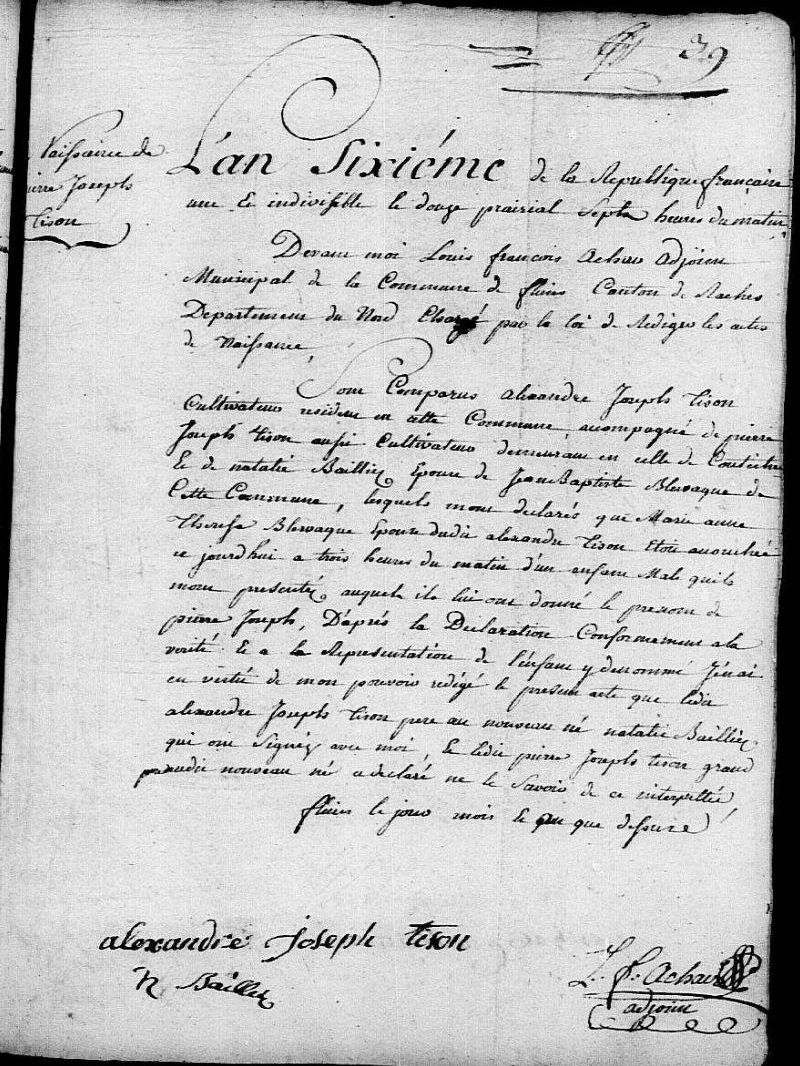 39
Naissance de
pierre Joseph
tison
L'an Sixiéme de la Republique françaire
une Et indivisible le douze prairial Sept heures du matin,
Devant moi Louis françois Achau Adjoint
Municipal de la Commune de flines Canton de Raches
Departement du Nord Chargé par la loi de Redigér les actes
de Naissance,
Sont Comparus alexandre Joseph tison
Cultivateur résident en cette Commune, acompagné de pierre
Joseph tison aussi Cultivateur demeurant en celle de Coutiche
Et de natalie Baillie Epouse de Jean Baptiste Blervaque de
Cette Commune, lesquels mont declarés que Marie anne
Theresse Blervaque Epouse dudit alexandre tison Etoit acouchée
ce jourdhui a trois heures du matin d'un enfant Male quils
mont presentés auquele ils lui ont donné le prenom de
pierre Joseph, D'aprés la Declaration Conformement a la
verité Et a la Représentation de l'énfant y denommé Jénai
en vertue de mon pouvoir redigé le present acte que ledit
alexandre Joseph tison pere au nouveau né natalie Baillie
qui ont Signés avec moi, Et ledit pierre Joseph tison grand
audit nouveau né a declaré ne le Savoir de ce interpellée,
flines le jour mois Et an que dessuse
alexandre Joseph tison
N Baillie
L. f. Achau
adjoint